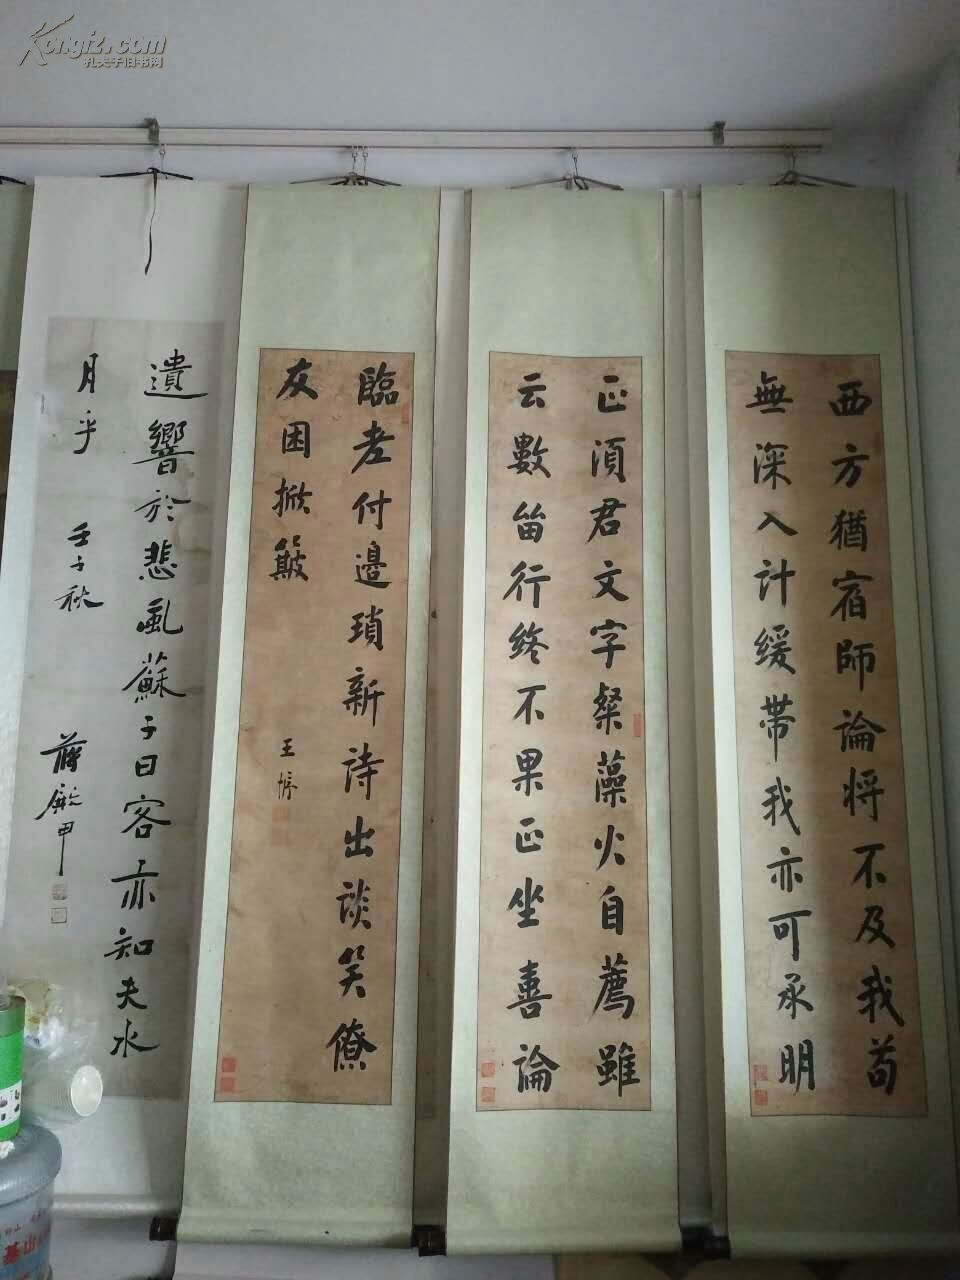 西方猶宿師論將不及我苟
無深入計緩帶我亦可承明
正須君文字粲藻火自薦雖
云數苗行終不果正坐喜論
臨老付邊瑣新詩出談笑僚
友困掀簸
王
遺響於悲風蘇子曰客亦知夫水
月乎 壬子秋
蔣
Kongfz.com
孔夫子旧书网
基山